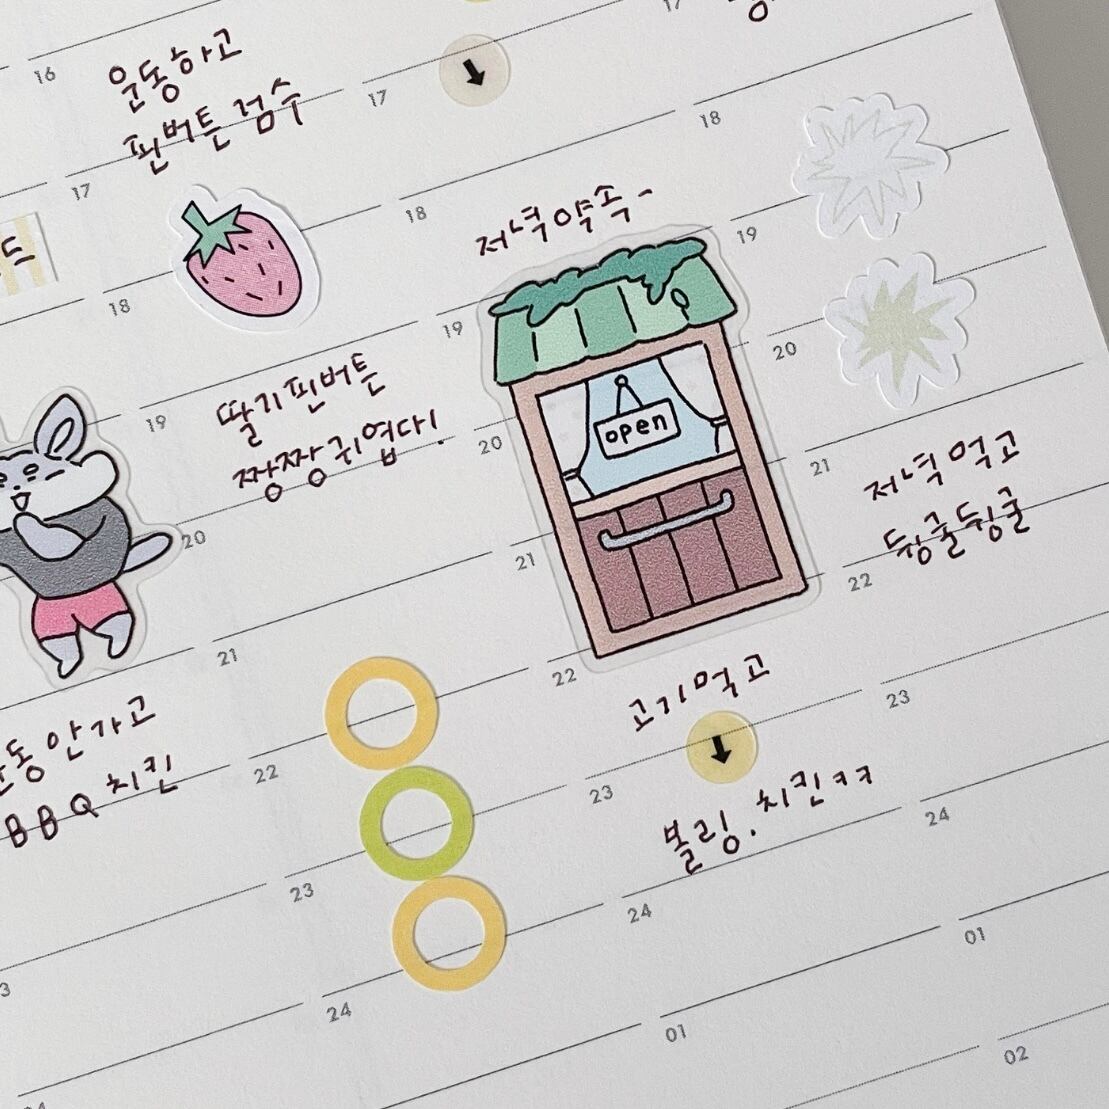 16
운동하고
핀버튼 검수
17
18
딸기 핀버튼
짱짱 귀엽다!
19
20
21
22
23
24
운동 안가고
BBQ 치킨
17
18
19
20
21
22
23
24
저녁약속-
open
고기먹고
볼링. 치킨ㅋㅋ
18
19
20
21
22
23
24
01
저녁 먹고
뒹굴뒹굴
01
02